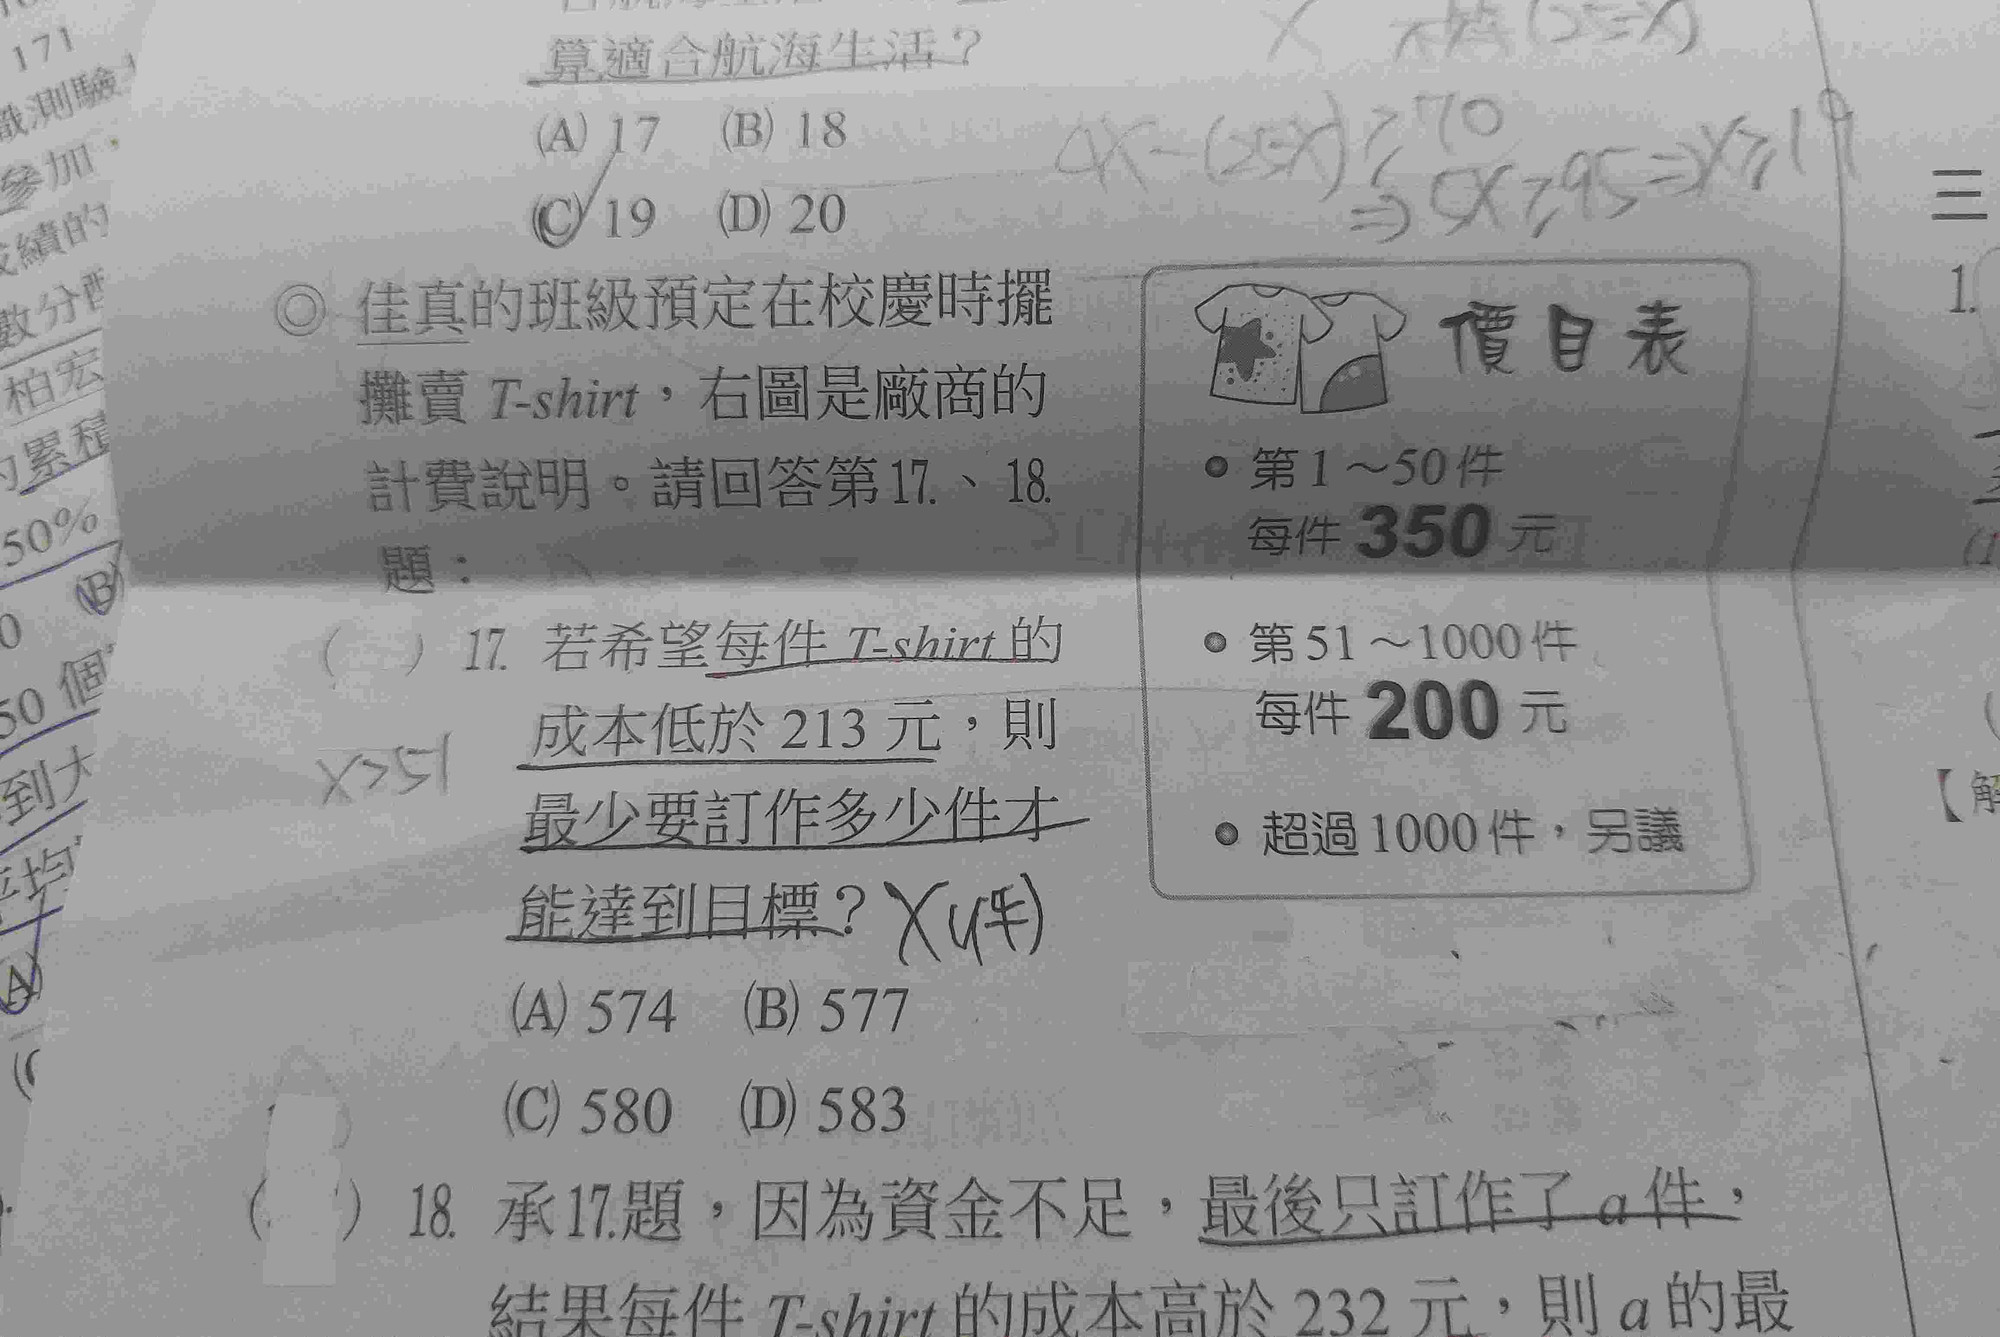 171
識測驗
參加，
成績的
數分配
柏宏
的累積
50%
(B)
50 個
到大
平均
(A)
算適合航海生活？
(A) 17 (B) 18
(C) 19 (D) 20
X
4X-(25-X)≥70
⇒5X≥95⇒X≥19
◎ 佳真的班級預定在校慶時擺
攤賣 T-shirt，右圖是廠商的
計費說明。請回答第17.、18.
題：
價目表
• 第1～50件
每件 350 元
• 第51～1000件
每件 200 元
• 超過1000件，另議
( ) 17. 若希望每件 T-shirt 的
成本低於 213 元，則
最少要訂作多少件才
能達到目標？X(件)
X>51
(A) 574 (B) 577
(C) 580 (D) 583
( ) 18. 承17.題，因為資金不足，最後只訂作了 a 件，
結果每件 T-shirt 的成本高於 232 元，則 a 的最
三
1.
(1
【解